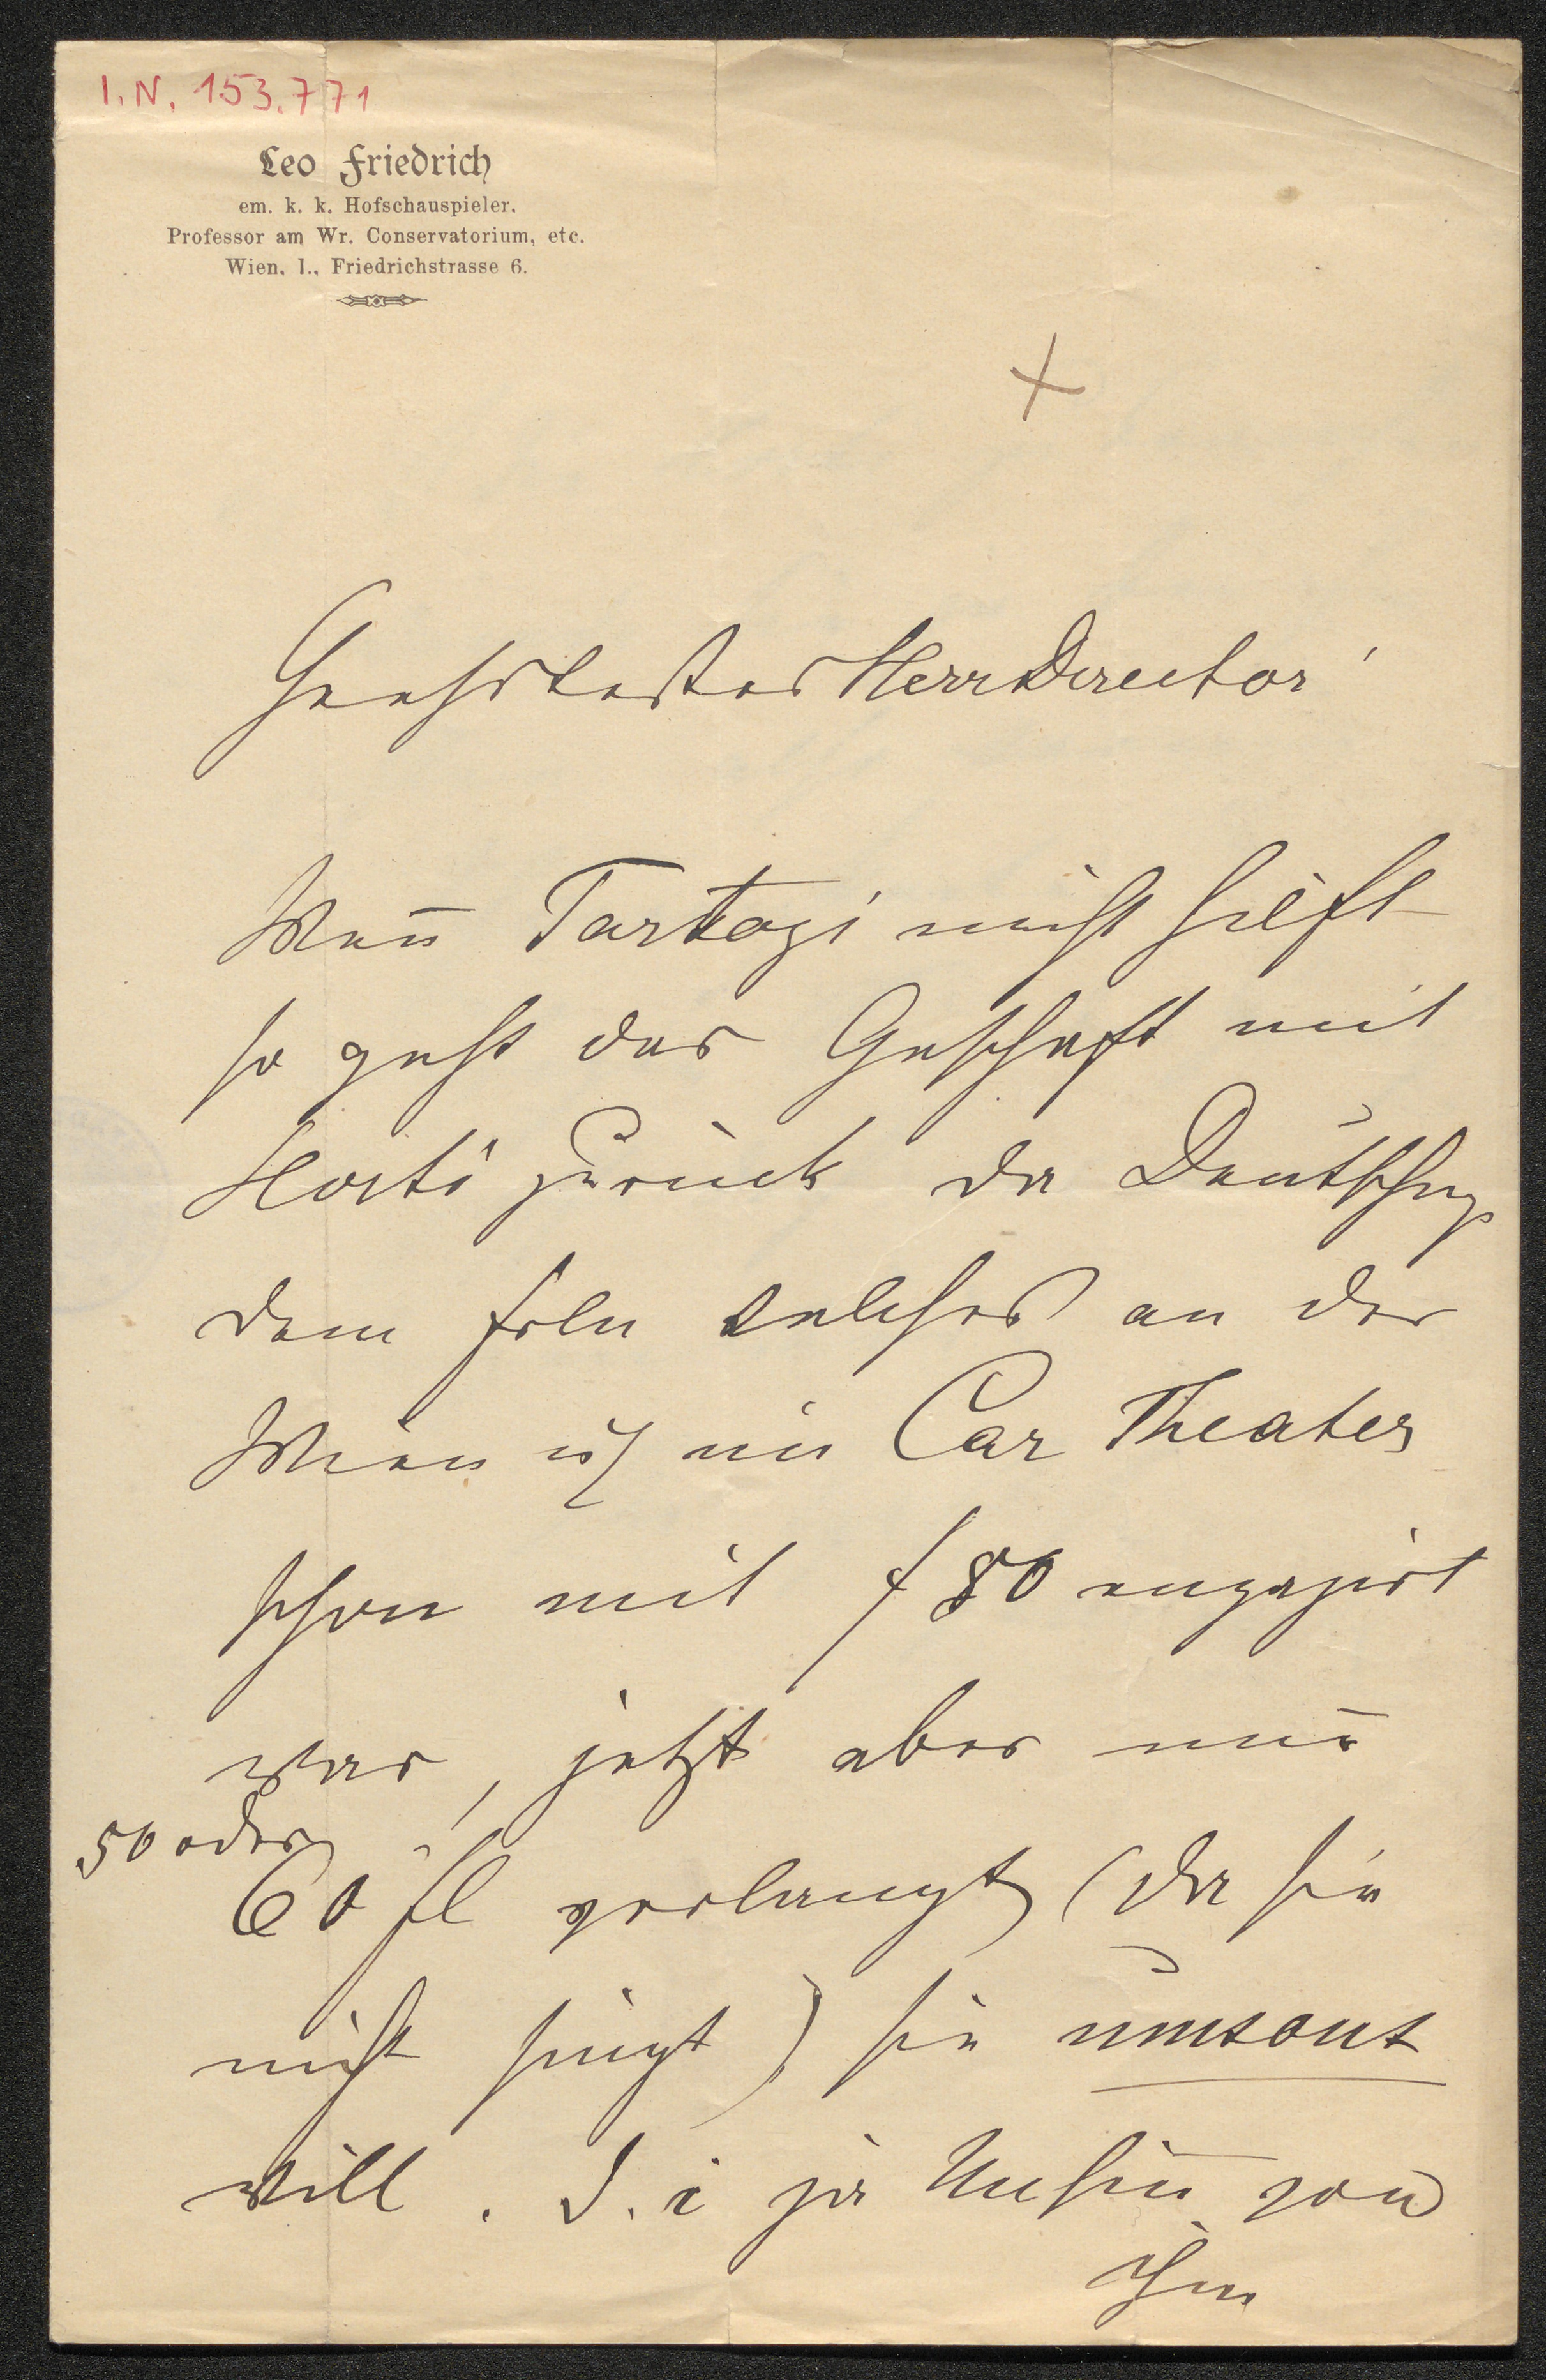 I. N. 153.771
Leo Friedrich
em. k. k. Hofschauspieler.
Professor am Wr. Conservatorium, etc.
Wien, I., Friedrichstrasse 6.
Geehrtester Herr Director!
Wen̄ Tartozi nicht hilft
so geht das Geschäft mit
zurück da Deutsch
dem Frln welches an der
Wien u in Car Theater
schon mit f 80 engagirt
war, jetzt aber nur
50 oder
60 fl verlangt (da sie
nicht singt) sie umsonst
will. D. i ja Unsin̄ von
ihm